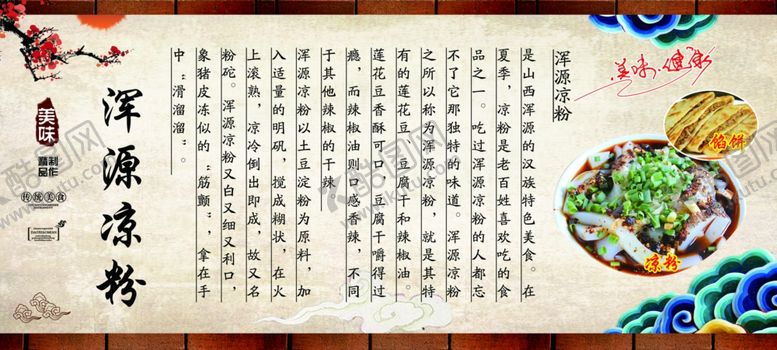 美味·健康
馅饼
凉粉
浑源凉粉
是山西浑源的汉族特色美食。在
夏季，凉粉是老百姓喜欢吃的食
品之一。吃过浑源凉粉的人都忘
不了它那独特的味道。浑源凉粉
之所以称为浑源凉粉，就是其特
有的莲花豆、豆腐干和辣椒油。
莲花豆香酥可口，豆腐干嚼得过
瘾，而辣椒油则口感香辣，不同
于其他辣椒的干辣
浑源凉粉以土豆淀粉为原料，加
入适量的明矾，搅成糊状，在火
上滚熟，凉冷倒出即成，故又名
粉砣。浑源凉粉又白又细又利口，
象猪皮冻似的“筋颤”，拿在手
中“滑溜溜”。
浑源凉粉
美味
精品
制作
传统美食